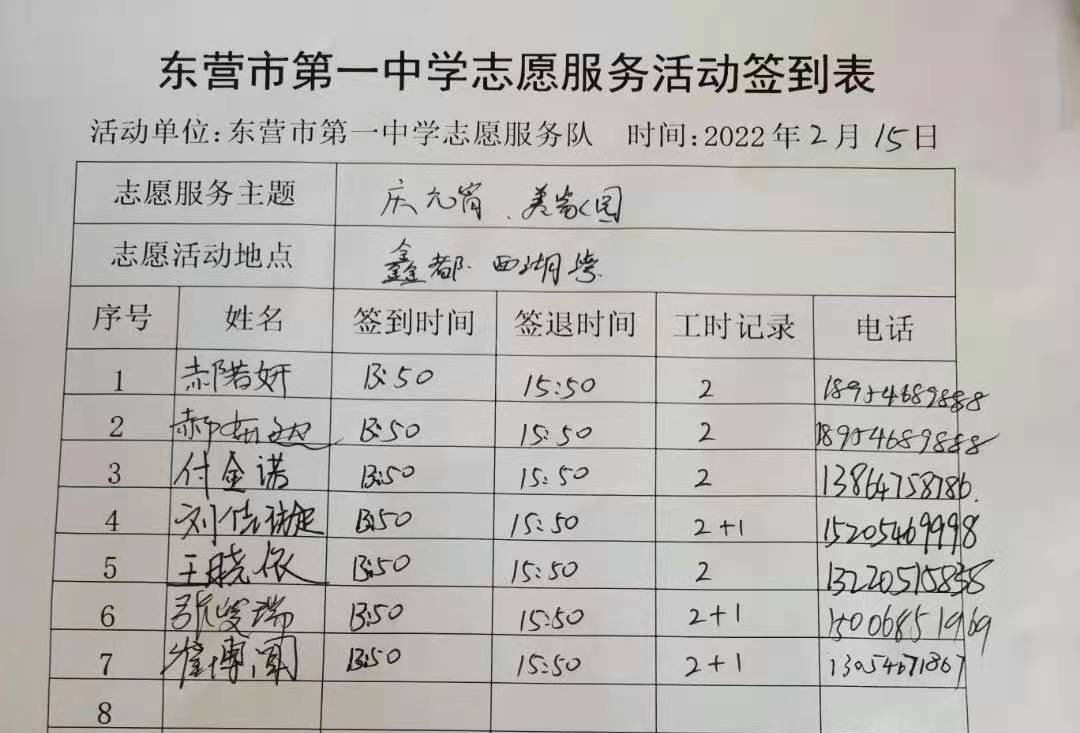 东营市第一中学志愿服务活动签到表
活动单位:东营市第一中学志愿服务队 时间:2022年2月15日
志愿服务主题 庆元宵、美家园
志愿活动地点 鑫都·西湖湾
序号 姓名 签到时间 签退时间 工时记录 电话
1 郝若妍 13:50 15:50 2 18954689888
2 郝 13:50 15:50 2 18954689888
3 付金诺 13:50 15:50 2 13864758786.
4 刘 13:50 15:50 2+1 15205469998
5 王晓依 13:50 15:50 2 13220515838
6 张峻瑞 13:50 15:50 2+1 15006851969
7 崔博闻 13:50 15:50 2+1 13054671867
8